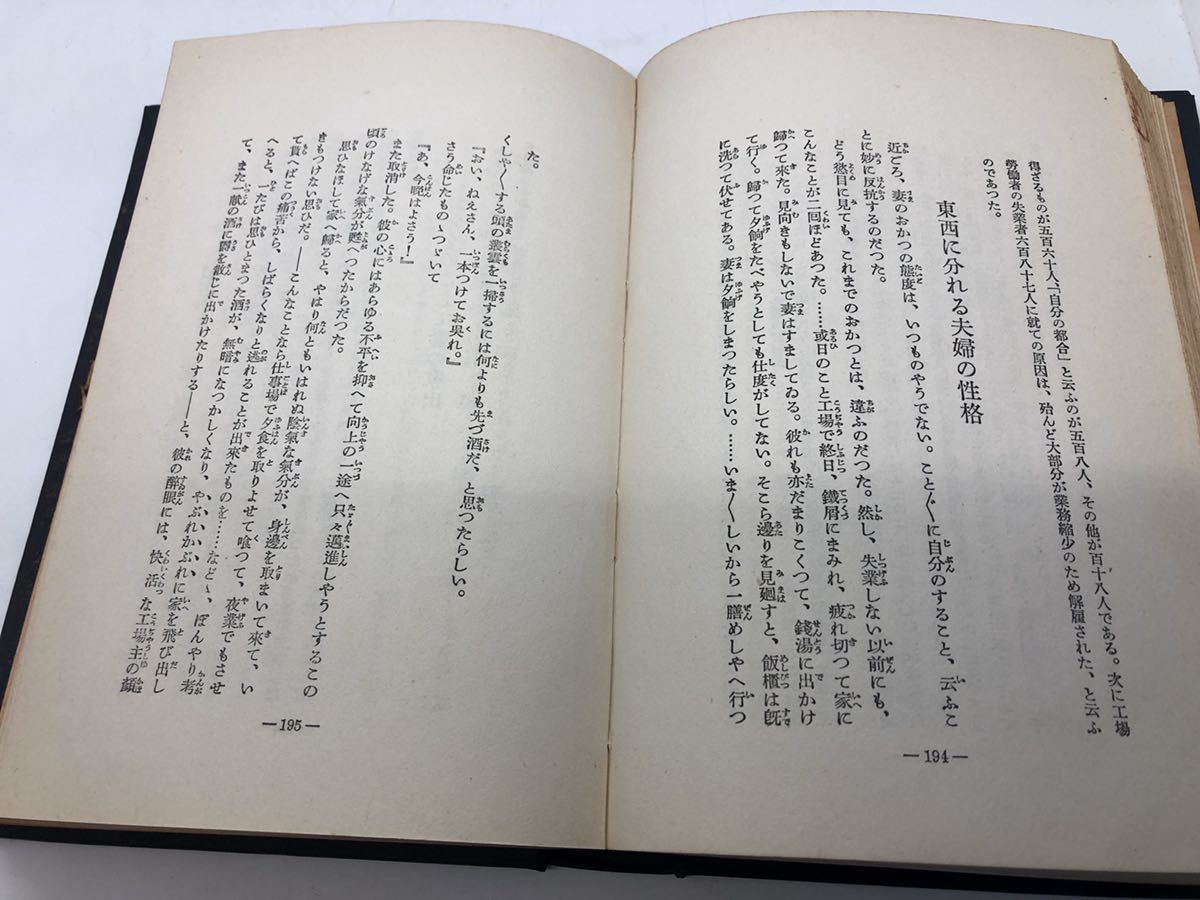 得ざるものが五百六十人、「自分の都合」と云ふのが五百八人、その他が百十八人である。次に工場
勞働者の失業者六百八十七人に就ての原因は、殆んど大部分が業務縮少のため解雇された、と云ふ
のであつた。
東西に分れる夫婦の性格
近ごろ、妻のおかつの態度は、いつものやうでない。こと〴〵に自分のすること、云ふこ
とに妙に反抗するのだつた。
どう慾目に見ても、これまでのおかつとは、違ふのだつた。然し、失業しない以前にも、
こんなことが二回ほどあつた。……或日のこと工場で終日、鐵屑にまみれ、疲れ切つて家に
歸つて來た。見向きもしないで妻はすましてゐる。彼れも亦だまりこくつて、錢湯に出かけ
て行く。歸つて夕餉をたべやうとしても仕度がしてない。そこら邊りを見廻すと、飯櫃は既
に洗つて伏せてある。妻は夕餉をしまつたらしい。……いま〳〵しいから一膳めしやへ行つ
― 194 ―
た。
くしや〳〵する頭の叢雲を一掃するには何よりも先づ酒だ、と思つたらしい。
『おい、ねえさん、一本つけてお呉れ。』
さう命じたものゝつゞいて
『あ、今晩はよさう！』
また取消した。彼の心にはあらゆる不平を抑へて向上の一途へ只々邁進しやうとするこの
頃のけなげな氣分が甦へつたからだつた。
思ひなほして家へ歸ると、やはり何ともいはれぬ陰氣な氣分が、身邊を取まいて來て、い
きもつけない思ひだ。――こんなことなら仕事場で夕食を取りよせて喰つて、夜業でもさせ
て貰へばこの痛苦から、しばらくなりと逃れることが出來たものを……などゝ、ぼんやり考
へると、一たびは思ひとまつた酒が、無暗になつかしくなり、やぶれかぶれに家を飛び出し
て、また一献の酒に醉を徹じに出かけたりする――と、彼の醉眼には、快活な工場主の顏
― 195 ―